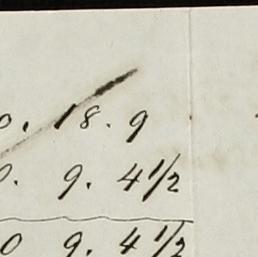 0. 18. 9
0. 9. 4 1/2
0 9. 4 1/2